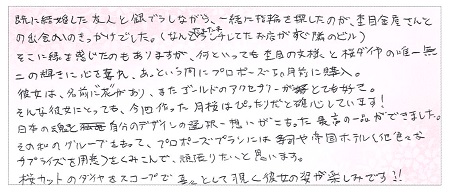 既に結婚した友人と銀ブラしながら、一緒に指輪を探したのが、杢目金屋さんと
の出会いのきっかけでした。(なんとランチしてたお店がお隣のビル)
そこに縁を感じたのもありますが、何といっても杢目の文様と桜ダイヤの唯一無
二の輝きに心を奪われ、あっという間にプロポーズする月前に購入。
彼女は、名前に花があり、またゴールドのアクセサリーがとても好き。
そんな彼女にとっても、今回作った月桂はぴったりだと確信しています!
日本の魂と自分のデザインの選択、想いがこもった最高の一品ができました。
その私のグルーブもあって、プロポーズプランには寿司や帝国ホテル(他色々な
サプライズを用意)をくみこんで、頑張りたいと思います。
桜カットのダイヤをスコープで喜々として覗く彼女の姿が楽しみです!!